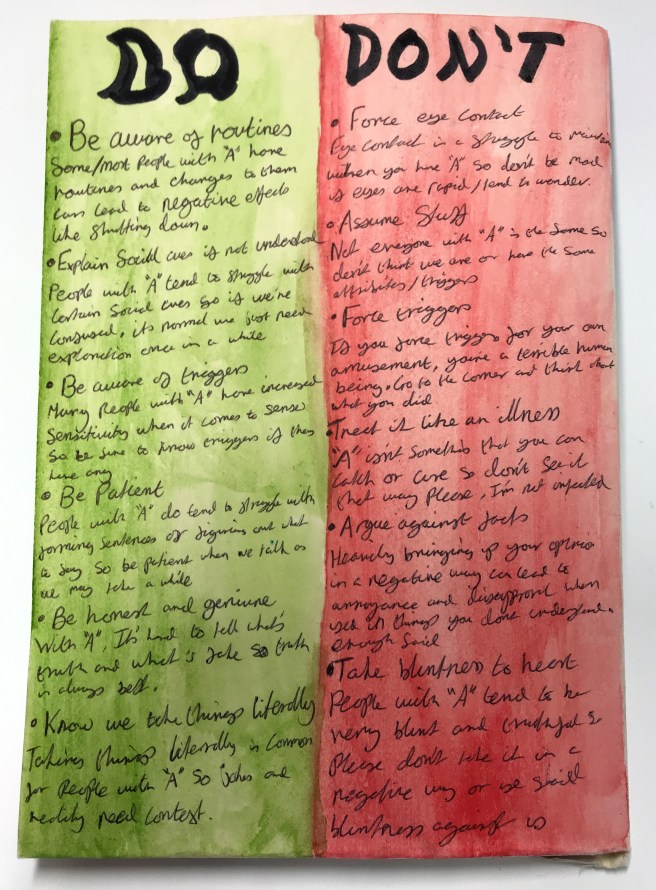 DO
• Be aware of routines
Some/most People with "A" have
routines and changes to them
can lead to negative effects
like shutting down.
• Explain Social cues if not understood
People with "A" tend to struggle with
Certain Social cues so if we're
Confused, its normal we just need
explanation once in a while
• Be aware of triggers
Many People with "A" have increased
Sensitivity when it comes to sense
so be sure to know triggers if they
have any
• Be Patient
People with "A" do tend to struggle with
forming sentences or figuring out what
to say so be patient when we talk as
we may take a while
• Be honest and geniune
With "A", It's hard to tell what's
truth and what is fake so truth
is always best.
• Know we take things literally
Taking things literally is common
for People with "A" so jokes and
reality need context.
DON'T
• Force eye contact
Eye Contact is a struggle to maintain
when you have "A" so don't be mad
if eyes are rapid/tend to wonder.
• Assume Stuff
Not everyone with "A" is the same so
don't think we are or have the same
attributes/triggers
• Force triggers
If you force triggers for your own
amusement, you're a terrible human
being. Go to the corner and think about
what you did
• Treat it like an illness
"A" isn't something that you can
catch or cure so don't see it
that way please, I'm not infected
• Argue against facts
Heavily bringing up your opinion
in a negative way can lead to
annoyance and disapproval when
used on things you dont understand.
enough said
• Take bluntness to heart
People with "A" tend to be
very blunt and truthful so
Please don't take it in a
negative way or use said
bluntness against us